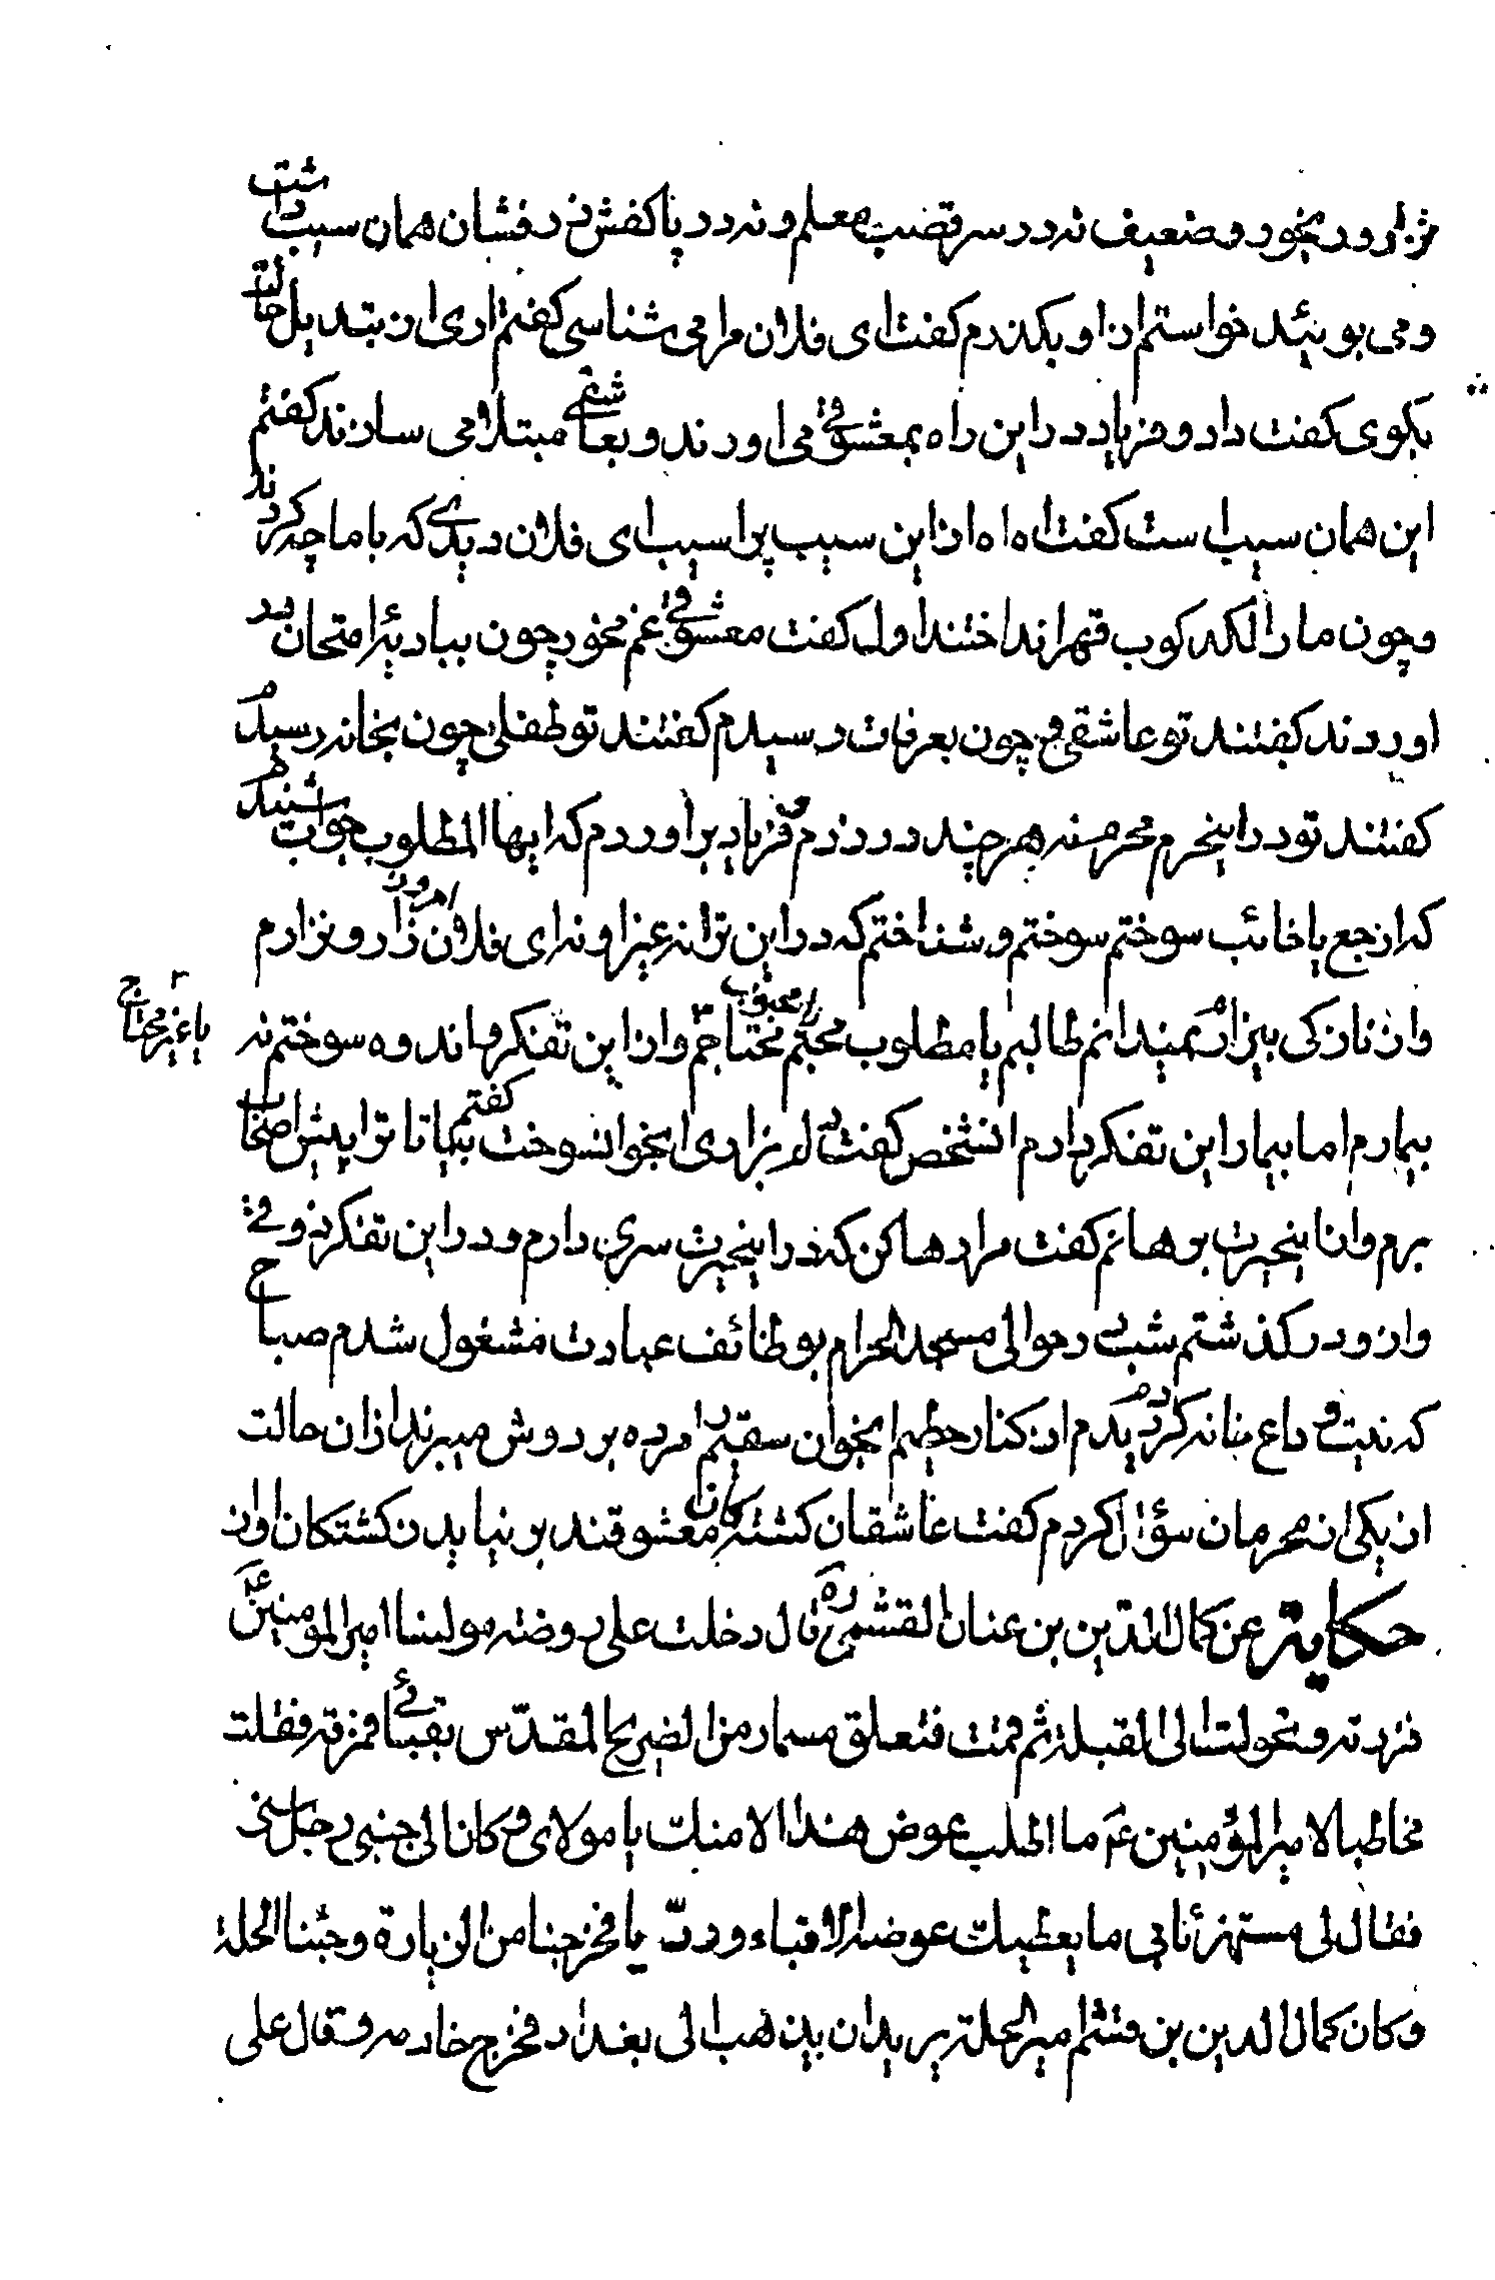 نزار و رنجور و ضعیف نه در سر قصب معلم و نه در پا کفش زر فشان همان سیب داشت
و می بوئید خواستم از او بکذرم کفت ای فلان مرا می شناسی کفتم اری از تبدیل حالت
بکوی کفت داد و فریاد در این راه بمعشوقی می اورند و بعاشقی مبتلا می سازند کفتم
این همان سیب است کفت اه اه از این سیب پر اسیب ای فلان دیدی که با ما چه کردند
و چون ما را لکد کوب قهر انداختند اول کفت معشوقی غم مخور چون ببادیه امتحان در
اوردند کفتند تو عاشقی و چون بعرفات رسیدم کفتند تو طفلی چون بخانه رسیدم
کفتند تو در اینحرم محرم نه هر چند در زدم و فریاد براوردم که ایها المطلوب جواب شنیدم
که ارجع یا خائب سوختم سوختم و شناختم که در این ترانه عیزاونه ای فلان امروز زار و نزارم
و از نازکی بیزارم نمیدانم طالبم یا مطلوب محبم یا محبوب محتاجم و از این تفکر و اندوه سوختم نه
یا غیر محتاج
بیمارم اما بیمار این تفکر دارم انشخص کفت دلم بزاری انجوان سوخت کفتم بیا تا ترا پیش اصحاب
برم و از اینحیرت برهانم کفت مرا رها کن که در اینحیرت سری دارم و در این تفکر ذوقی
و از او در کذشتم شب در حوالی مسجد الحرام بوظائف عبادت مشغول شدم صباح
که نیت وداع خانه کردم دیدم از کنار حطیم انجوان سقیم را مرده بر دوش میبرند از ان حالت
از یکی از محرمان سؤال کردم کفت عاشقان کشتکان معشوقند بر نیاید ز کشتکان اواز
حکایة عن کمال الدین بن عنان القشمی ره قال دخلت علی روضة مولینا امیر المومنین ع
فزرته و تحولت الی القبلة ثم قمت فتعلق مسمار من الضریح المقدس بقبائی فمزقه فقلت
مخاطبا لامیر المؤمنین ع ما اطلب عوض هذا الا منک یا مولای و کان الی جنبی رجل سنی
فقال لی مستهزئا بی ما یعطیک عوضه الا قباء وردیا فخرجنا من الزیارة و جئنا الحلة
و کان کمال الدین بن قشم امیر الحلة یرید ان یذهب الی بغداد فخرج خادمه و قال علی